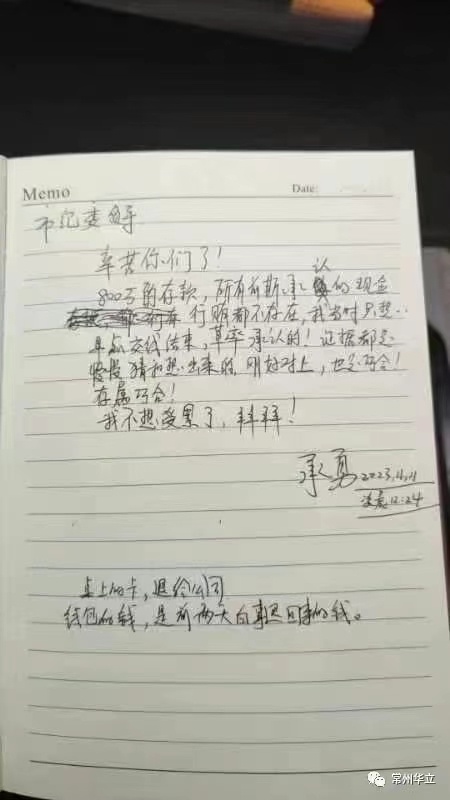 Memo Date:
市纪委
辛苦你们了!
800万的存款,所有前期承认的现金
行贿都不存在,我当时只想
早点交代结束,草率承认的!证据都是
慢慢猜和想出来的,刚好对上,也是巧合!
存属巧合!
我不想受累了,拜拜!
承勇 2023.4.1
凌晨12:24
桌上的卡,退给公司
钱包的钱,是前两天同事还回来的钱。
常州华立